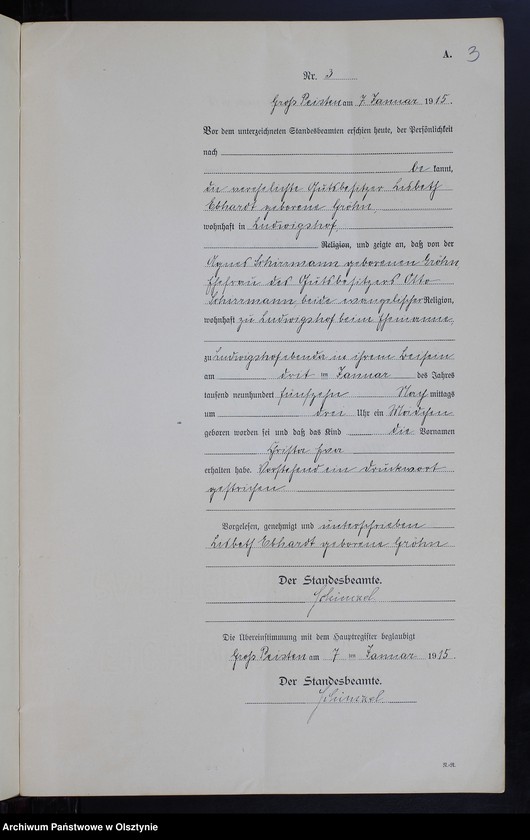 A. 3
Nr. 3
Groß Peisten am 7 Januar 1915.
Vor dem unterzeichneten Standesbeamten erschien heute, der Persönlichkeit
nach
be kannt,
die verehelichte Gutsbesitzer Lisbeth
Ebhardt geborene Gröhn,
wohnhaft in Ludwigshof,
Religion, und zeigte an, daß von der
Agnes Schirrmann geborenen Gröhn
Ehefrau des Gutsbesitzers Otto
Schirrmann, beide evangelischer Religion,
wohnhaft zu Ludwigshof beim Ehemanne,
zu Ludwigshof ebenda in ihrem Beisein
am drei ten Januar des Jahres
tausend neunhundert fünfzehn Nach mittags
um drei Uhr ein Mädchen
geboren worden sei und daß das Kind die Vornamen
Christa Eva
erhalten habe. Vorstehend ein Druckwort
gestrichen
Vorgelesen, genehmigt und unterschrieben
Lisbeth Ebhardt geborene Gröhn
Der Standesbeamte.
Die Übereinstimmung mit dem Hauptregister beglaubigt
Groß Peisten am 7 ten Januar 1915.
Der Standesbeamte.
Archiwum Państwowe w Olsztynie